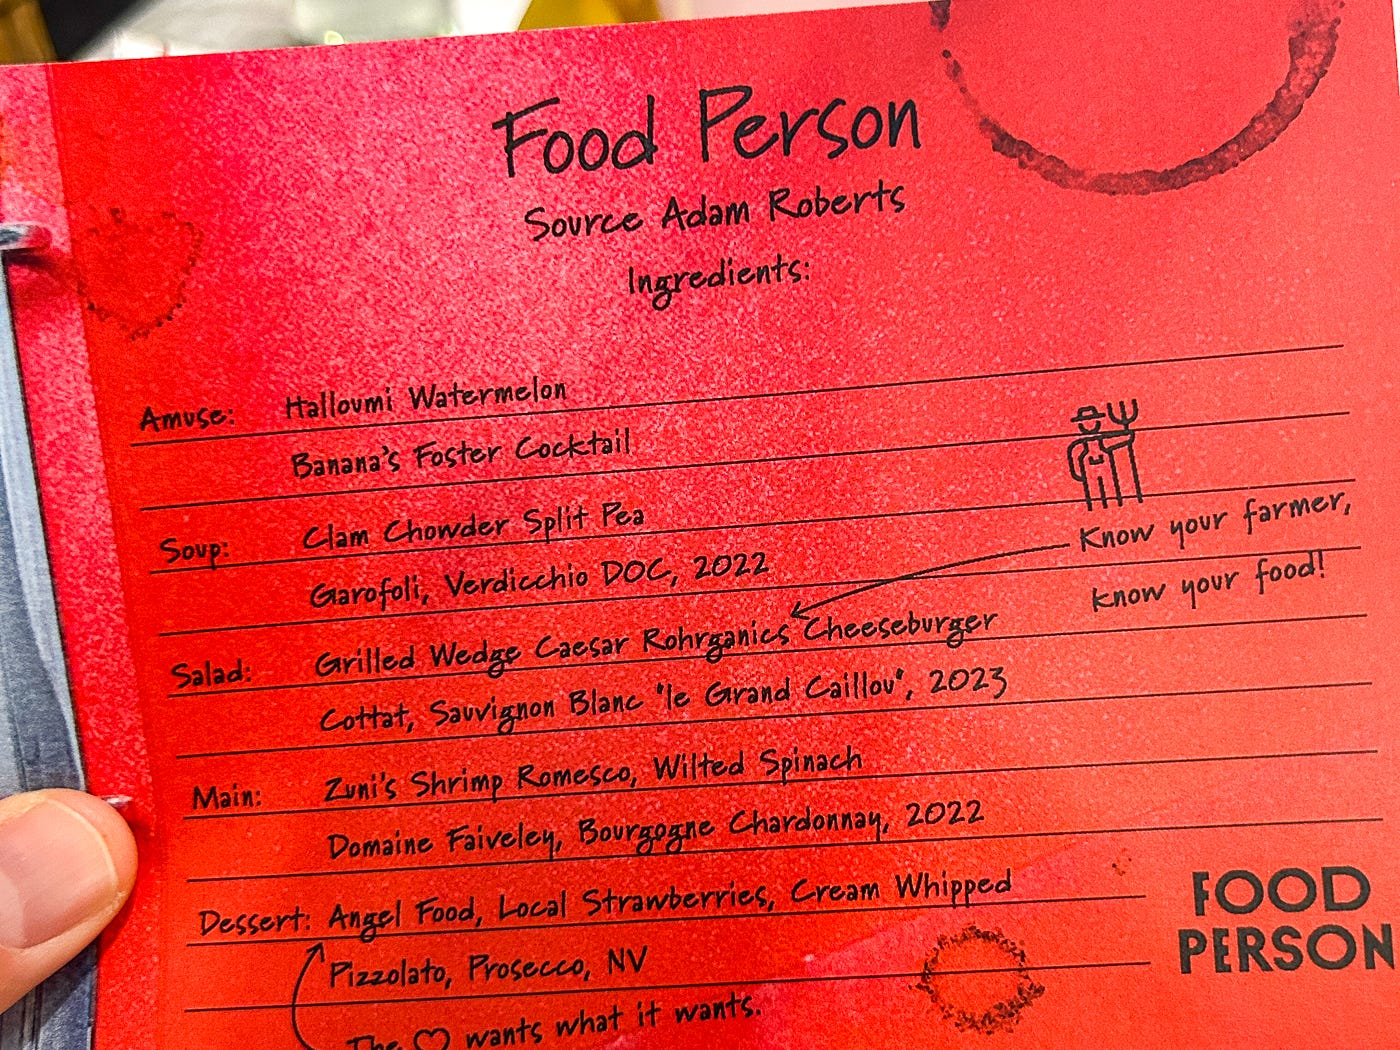 Food Person
Source Adam Roberts
Ingredients:
Amuse: Halloumi Watermelon
Banana's Foster Cocktail
Soup: Clam Chowder Split Pea
Garofoli, Verdicchio DOC, 2022
Know your farmer,
Know your food!
Salad: Grilled Wedge Caesar Rohrganics Cheeseburger
Cottat, Sauvignon Blanc "le Grand Caillou", 2023
Main: Zuni's Shrimp Romesco, Wilted Spinach
Domaine Faiveley, Bourgogne Chardonnay, 2022
Dessert: Angel Food, Local Strawberries, Cream Whipped
Pizzolato, Prosecco, NV
The ♡ wants what it wants.
FOOD
PERSON